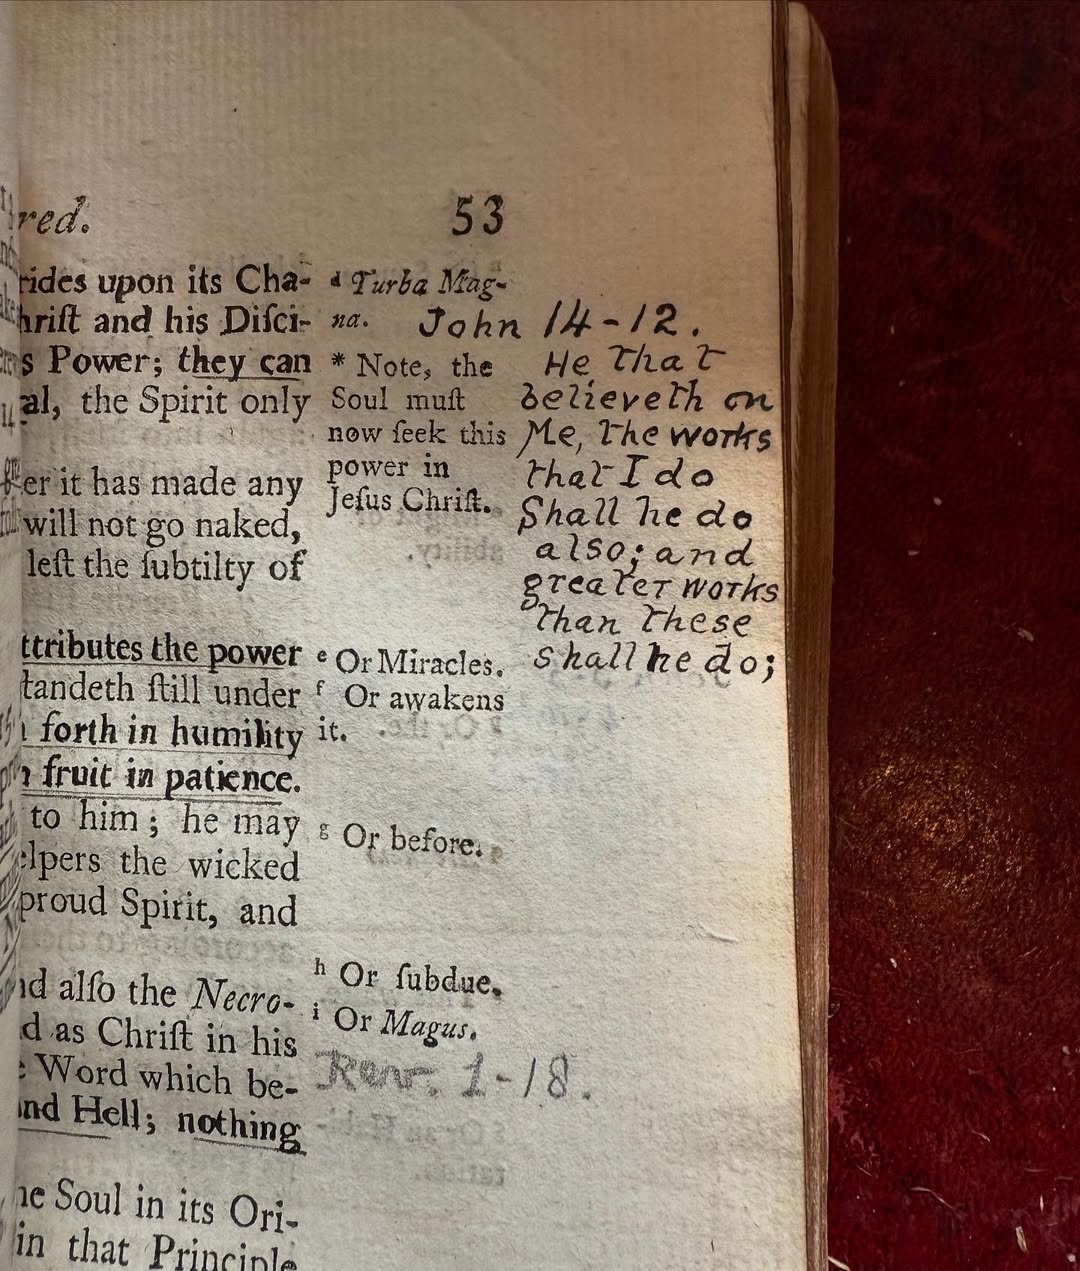 red. 53
rides upon its Cha-
hriſt and his Diſci-
s Power; they can
al, the Spirit only
er it has made any
will not go naked,
left the ſubtilty of
ttributes the power
tandeth ſtill under
forth in humility
fruit in patience.
to him; he may
elpers the wicked
proud Spirit, and
nd alſo the Necro-
d as Chriſt in his
Word which be-
nd Hell; nothing
he Soul in its Ori-
in that Principle
d Turba Mag-
na.
* Note, the
Soul muſt
now ſeek this
power in
Jeſus Chriſt.
e Or Miracles.
f Or awakens
it.
g Or before.
h Or ſubdue.
i Or Magus.
Rev. 1-18.
John 14-12.
He that
believeth on
Me, the works
that I do
Shall he do
also; and
greater works
than these
shall he do;